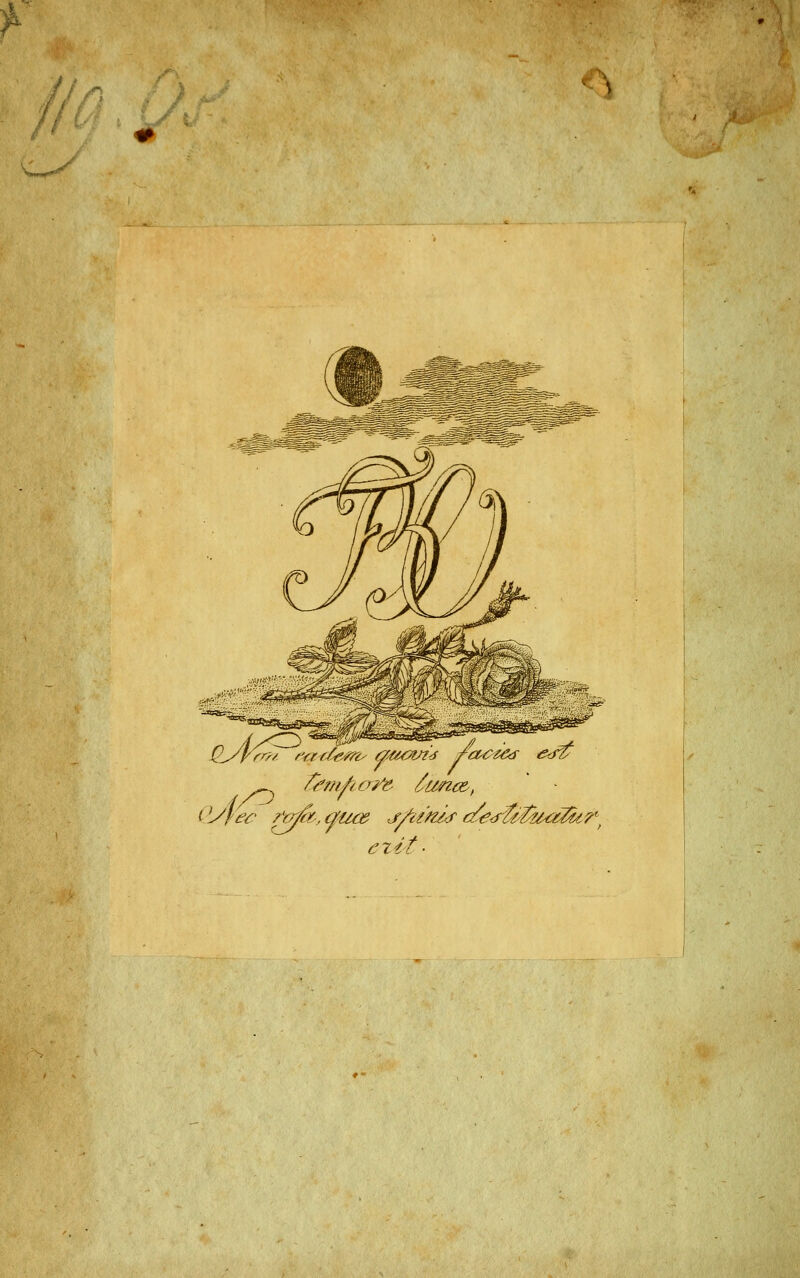 119.05.
Non eadem quovis facies est
tempore lunæ,
Nec rosa, quæ spinis destituatur,
erit.